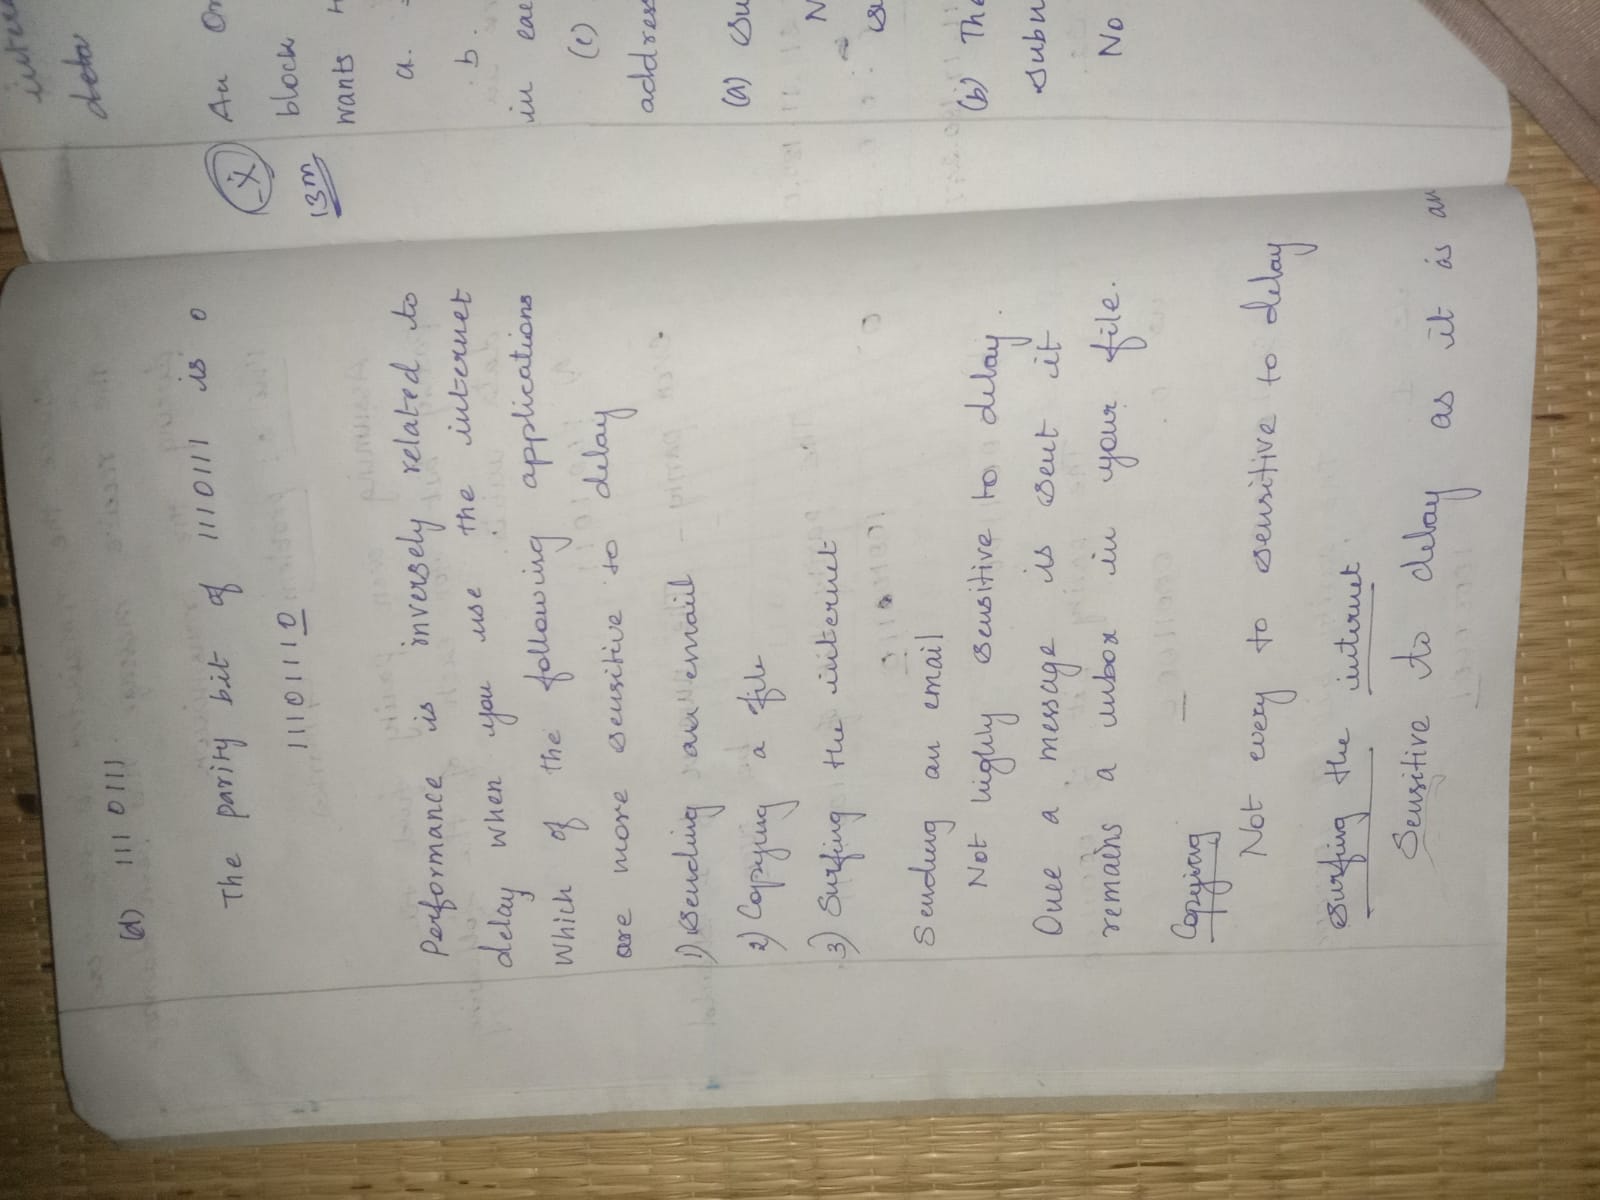 (d) 1110111.
The parity bit of 1110111 is 0
11101110
Performance is inversely related to
delay when you use the internet
Which of the following applications
are more sensitive to delay
1) Sending an email
2) Copying a file
3) Surfing the internet
Sending an email
Not highly sensitive to delay.
Once a message is sent it
remains a inbox in your file.
Copying
Not every to sensitive to delay
Surfing the internet.
Sensitive to delay as it is an
deta
X
13m
An Or
block
wants
a.
b.
in eac
(c)
address
(a) su
N
su
(b) The
subn
No